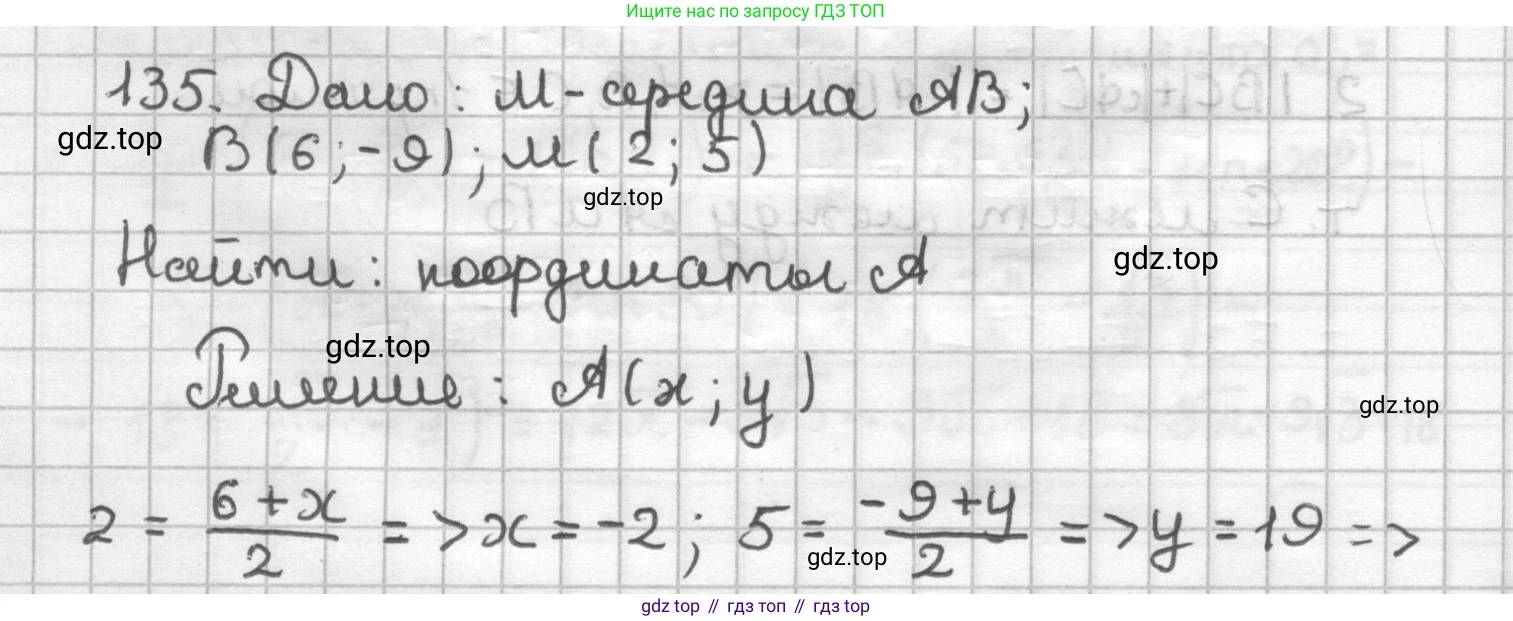 Ищите нас по запросу ГДЗ ТОП
135. Дано: М - середина АВ;
gdz.top
В(6;-9); М(2; 5)
gdz.top
Найти: координаты А
gdz.top
gdz.top
Решение: А(x; y)
gdz.top
2 = (6 + x)/2 => x = -2; 5 = (-9 + y)/2 => y = 19 =>
gdz.top
gdz top // гдз топ // гдз top